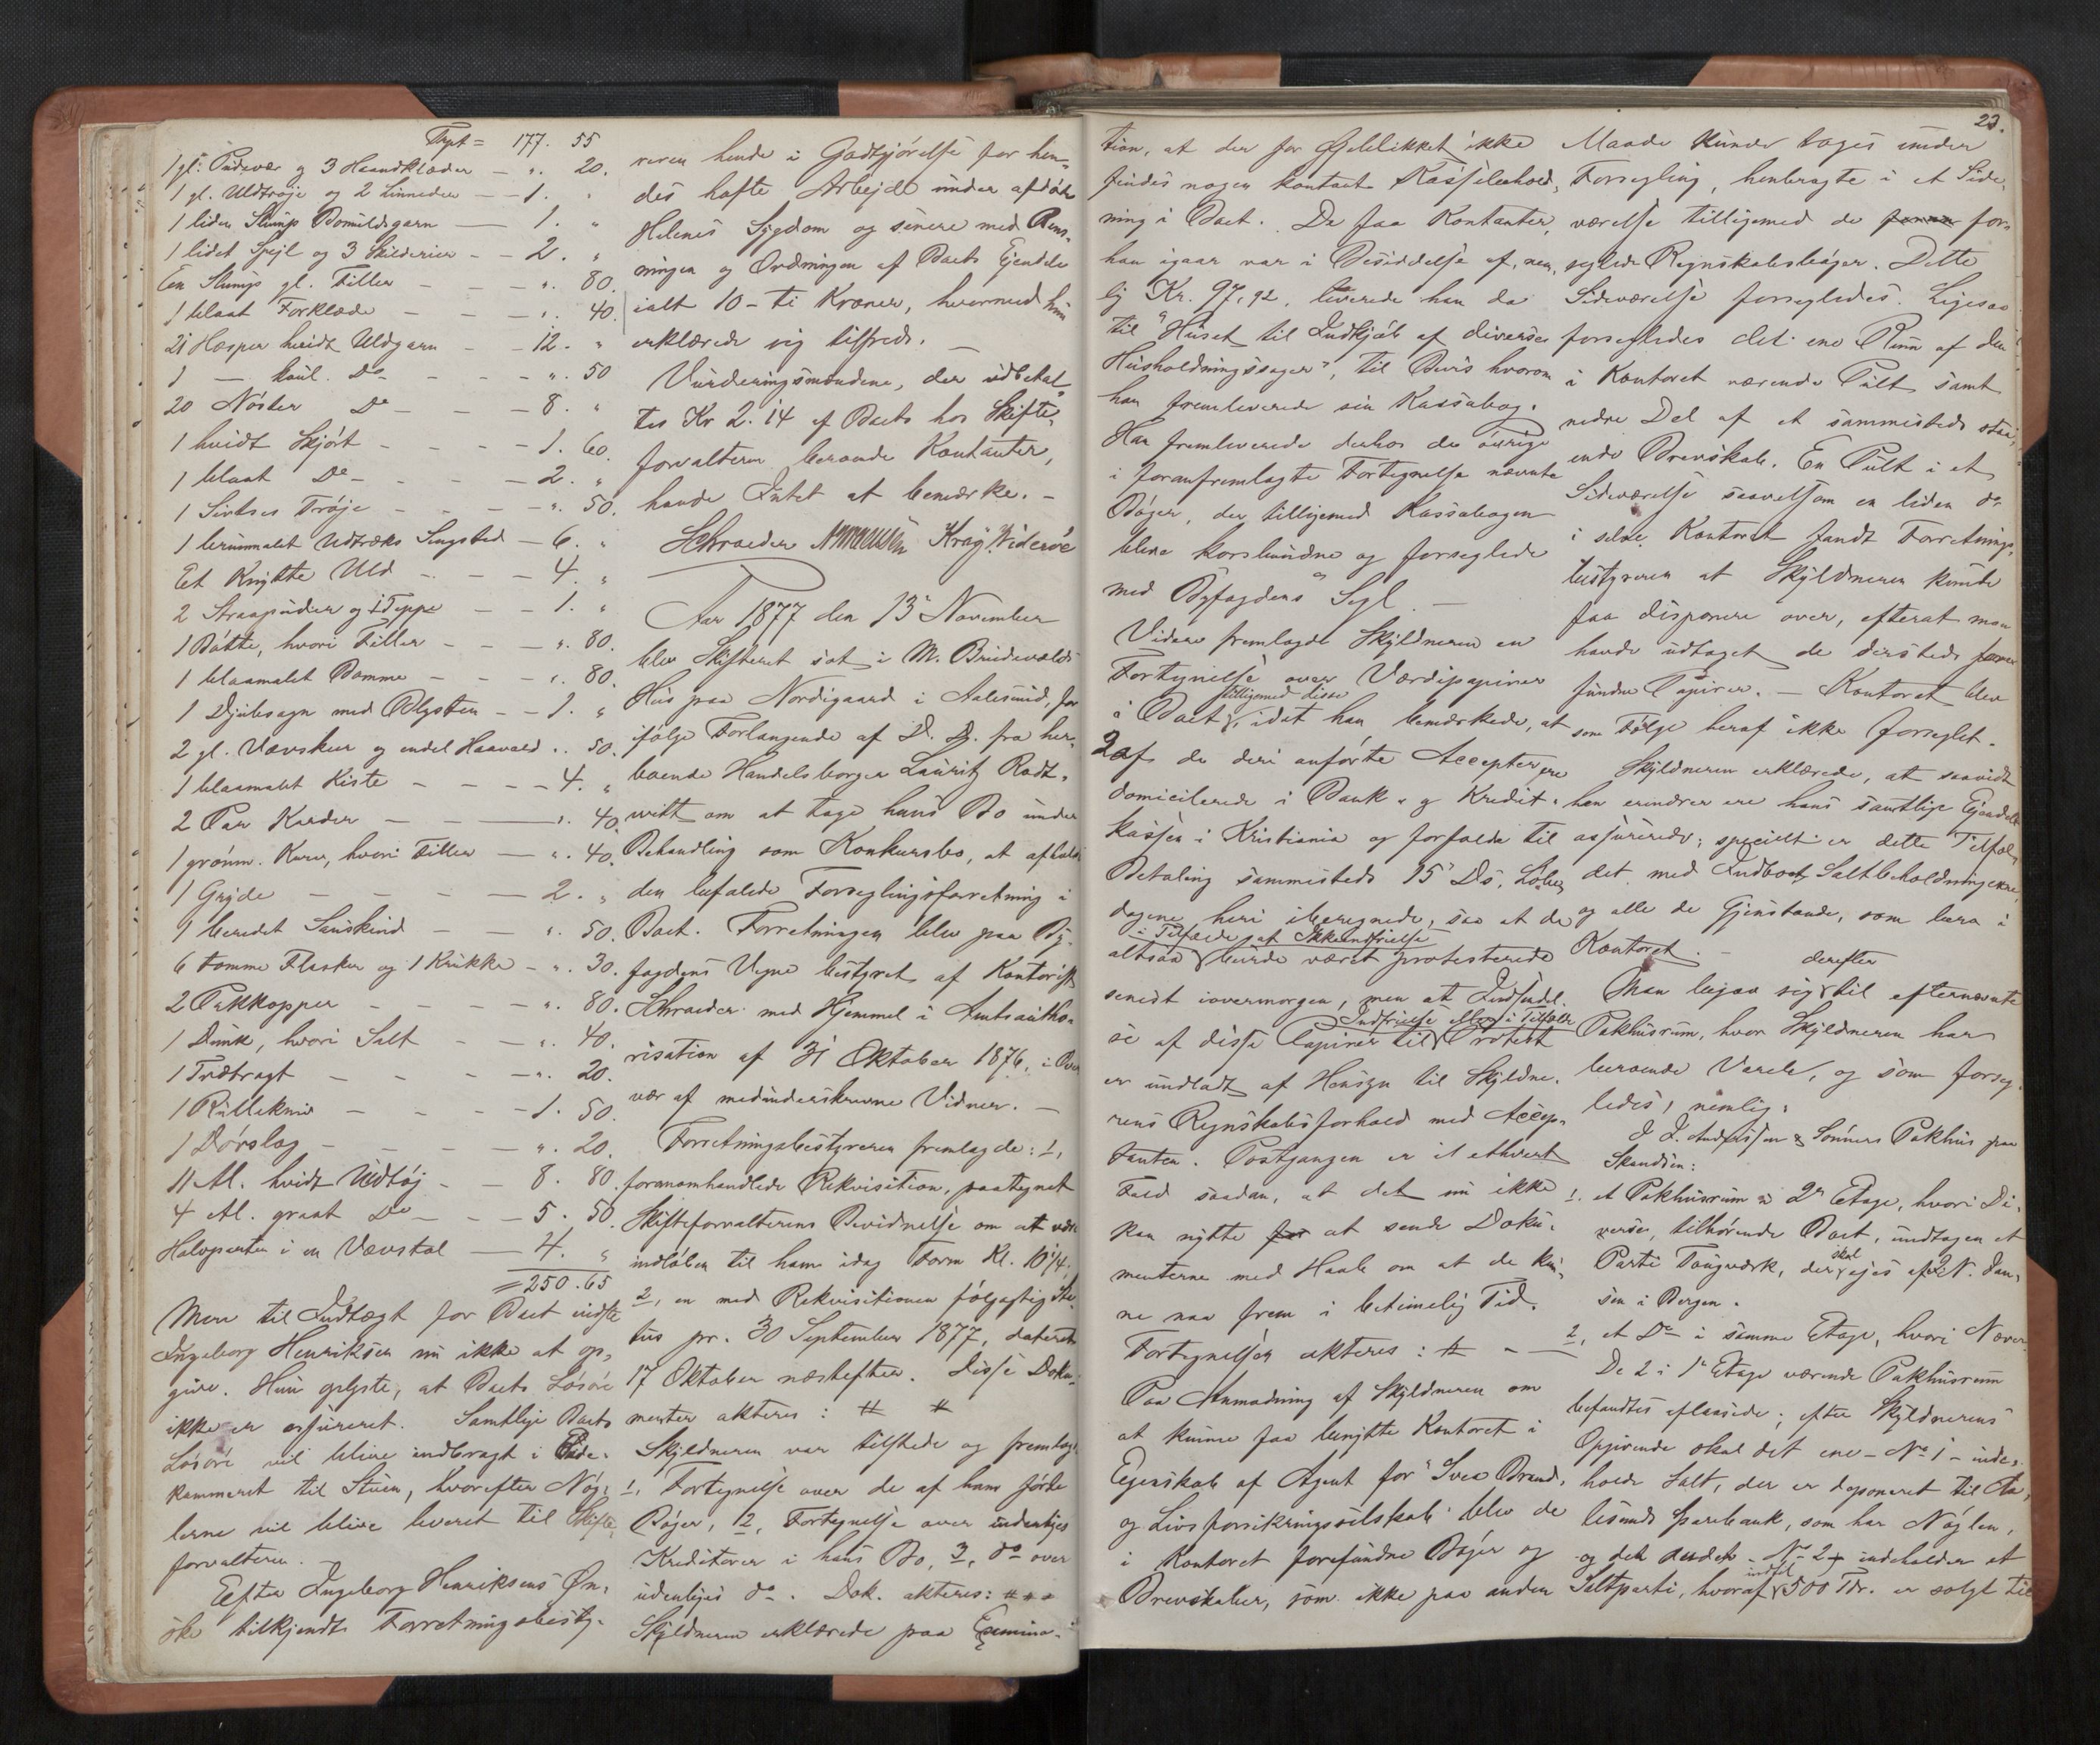 Trpt = 177. 55
1 gl. Pudevær og 3 Haandklæder — ". 20.
1 gl. Uldtrøje og 2 Linneder — 1. "
1 liden Slump Bomuldsgarn — 1. "
1 lidet Spejl og 3 Skilderier — 2. "
En Slump gl. Filler — ". 80.
1 blaat Forklæde — ". 40.
21 Hesper hvidt Uldgarn — 12. "
1 — kaul. Do — ". 50
20 Nøster Do — 8. "
1 hvidt Skjørt — 1. 60.
1 blaat Do — 2. "
1 Sirtses Trøje — ". 50.
1 brunmalet Udtræks Sengsted — 6. "
Et Knytte Uld — 4. "
2 Straapuder og 1 Teppe — 1. "
1 Bøtte, hvori Filler — ". 80.
1 blaamalet Bomme — ". 80.
1 Djubsagn med Blysten — 1. "
2 gl. Vævskeer og endel Haavald ". 50.
1 blaamalet Kiste — 4. "
2 Par Karder — ". 40.
1 grønm. Kurv, hvori Filler — ". 40.
1 Gryde — 2. "
1 beredet Sauskind — ". 50.
6 tomme Flasker og 1 Krukke — ". 30.
2 Pakkopper — ". 80.
1 Dunk, hvori Salt — ". 40.
1 Trætragt — ". 20.
1 Rullekniv — 1. 50.
1 Dørslag — ". 20.
11 Al. hvidt Uldtøj — 8. 80.
4 Al. graat Do — 5. 50.
Halvparten i en Vævstol — 4. "
= 250. 65
Mere til Indtægt for Boet vidste
Ingeborg Henriksen nu ikke at op-
give. Hun oplyste, at Boets Løsøre
ikke er assureret. Samtlige Boets
Løsøre vil blive indbragt i Side-
kammeret til Stuen, hvorefter Nøg-
lerne vil blive leveret til Skifte-
forvalteren.
Efter Ingeborg Henriksens Øn-
ske tilkjendte Forretningsbesty-
reren hende i Godtgjørelse for hen-
des hafte Arbejde under afdøde
Helenes Sygdom og senere med Rens-
ningen og Ordningen af Boets Ejendele
ialt 10 – ti Kroner, hvormed hun
erklærede sig tilfreds. —
Vurderingsmændene, der udbetal-
tes Kr 2.14 af Boets hos Skifte-
forvalteren beroende Kontanter,
havde Intet at bemærke. —
Schrøeder Krag Viderøe
Aar 1877 den 13 November
blev Skifteret sat i M. Brudevolds
Hus paa Nordigaard i Aalesund, for
ifølge Forlangende af D. D. fra her-
boende Handelsborger Lauritz Rødt-
witt om at tage hans Bo under
Behandling som Konkursbo, at afholde
den befalede Forseglingsforretning i
Boet. Forretningen blev paa By-
fogdens Vegne bestyret af Kontorist
Schrøeder med Hjemmel i Amtsautho-
risation af 31 Oktober 1876, i Over
vær af medunderskrevne Vidner. —
Forretningsbestyreren fremlagde: 1,
foranomhandlede Rekvisition, paategnet
Skifteforvalterens Bevidnelse om at være
indløben til ham idag Form Kl. 10 1/4.
2, en med Rekvisitionen følgagtig Sta-
tus pr. 30 September 1877, dateret
17 Oktober næstefter. Disse Doku-
menter akteres: # #
Skyldneren var tilstede og fremlagde
1, Fortegnelse over de af ham førte
Bøger, 2, Fortegnelse over indenbyes
Kreditorer i hans Bo, 3, do over
udenbyes do. Dok. akteres: # # #
Skyldneren erklærede paa Examina-
23.
tion, at der for Øieblikket ikke
findes nogen kontant Kassebehold-
ning i Boet. De faa Kontanter,
han igaar var i Besiddelse af, nem-
lig Kr. 97,92, leverede han da
til "Huset til Indkjøb af diverse
Husholdningssager", til Bevis hvorom
han fremleverede sin Kassabog.
Han fremleverede derhos de øvrige
i foranfremlagte Fortegnelse nævnte
Bøger, der tilligemed Kassabogen
bleve korsbundne og forseglede
med Byfogdens Segl. —
Videre fremlagde Skyldneren en
Fortegnelse over Værdipapirer
tilligemed disse
i Boet, idet han bemærkede, at
2 af de deri anførte Accepter ere
domicilerede i Bank- og Kredit-
kassen i Kristiania og forfalde til
Betaling sammesteds 15 Ds., Løbe-
dagene heri iberegnede, saa at de
i Tilfælde af Ikkeindfrielse
altsaa burde været protesterede
senest iovermorgen, men at Indsendel-
Indfrielse eller i Tilfælde
se af disse Papirer til Protest
er undladt af Hensyn til Skyldne-
rens Regnskabsforhold med Accep-
tanten. Postgangen er i ethvert
Fald saadan, at det nu ikke
kan nytte for at sende Doku-
menterne med Haab om at de kun-
ne naa frem i betimelig Tid.
Fortegnelsen akteres: # —
Paa Anmodning af Skyldneren om
at kunne faa benytte Kontoret i
Egenskab af Agent for "Svea Brand-
og Livsforsikringsselskab" blev de
i Kontoret forefundne Bøger og
Brevskaber, som ikke paa anden
Maade kunde tages under
Forsegling, henbragte i et Side-
værelse tilligemed de foran for-
seglede Regnskabsbøger. Dette
Sideværelse forsegledes. Ligesaa
forsegledes det ene Rum af den
i Kontoret værende Pult samt
nedre Del af et sammesteds staa-
ende Brevskab. En Pult i et
Sideværelse saavelsom en liden do
i selve Kontoret fandt Forretnings-
bestyreren at Skyldneren kunde
faa disponere over, efterat man
havde udtaget de dersteds fore
fundne Papirer. — Kontoret blev
som Følge heraf ikke forseglet.
Skyldneren erklærede, at saavidt
han erindrer ere hans samtlige Ejendele
assurerede; specielt er dette Tilfæl-
det med Indbo, Saltbeholdningerne
og alle de Gjenstande, som bero i
Kontoret. —
derefter
Man begav sig til efternævnte
Pakhusrum, hvor Skyldneren har
beroende Varer, og som forseg-
ledes, nemlig:
I L. Andressen & Sønners Pakhus paa
Skandsen:
1. et Pakhusrum i 2n Etage, hvori Di-
verse, tilhørende Boet, undtagen et
skal
Parti Tougværk, der ejes af N. Jan-
sen i Bergen.
2, et Do i samme Etage, hvori Never.
De 2 i 1e Etage værende Pakhusrum
befandtes aflaasede; efter Skyldnerens
Opgivende skal det ene – No 1 – inde-
holde Salt, der er deponeret til Aa-
lesunds Sparebank, som har Nøglen,
og det andet – No 2 – indeholder et
indtil
Saltparti, hvoraf 500 Tdr. er solgt til